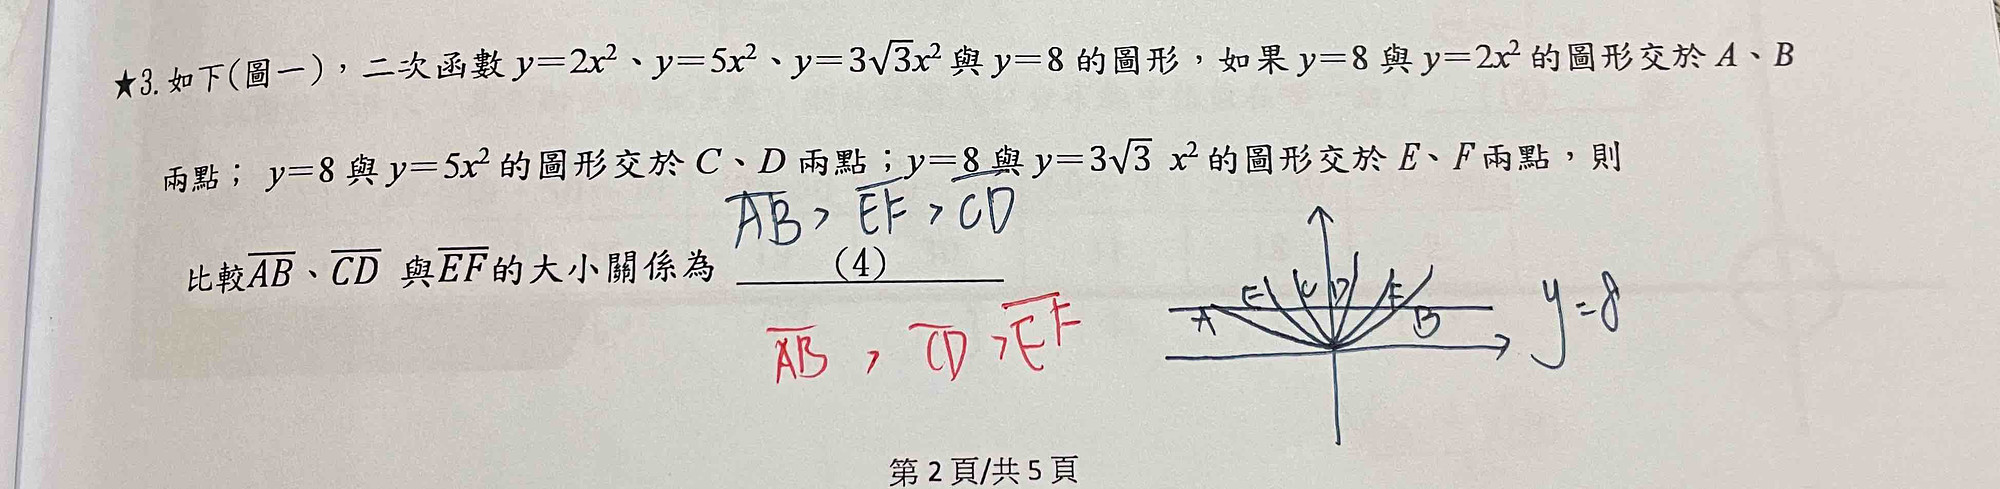 ★3. 如下(圖一)，二次函數 y=2x²、y=5x²、y=3√3x² 與 y=8 的圖形，如果 y=8 與 y=2x² 的圖形交於 A、B
兩點； y=8 與 y=5x² 的圖形交於 C、D 兩點；y=8 與 y=3√3 x² 的圖形交於 E、F 兩點，則
A̅B̅ > E̅F̅ > C̅D̅
比較 A̅B̅、C̅D̅ 與 E̅F̅ 的大小關係為 (4)
A̅B̅ > C̅D̅ > E̅F̅
A E C D F B y=8
第 2 頁/共 5 頁